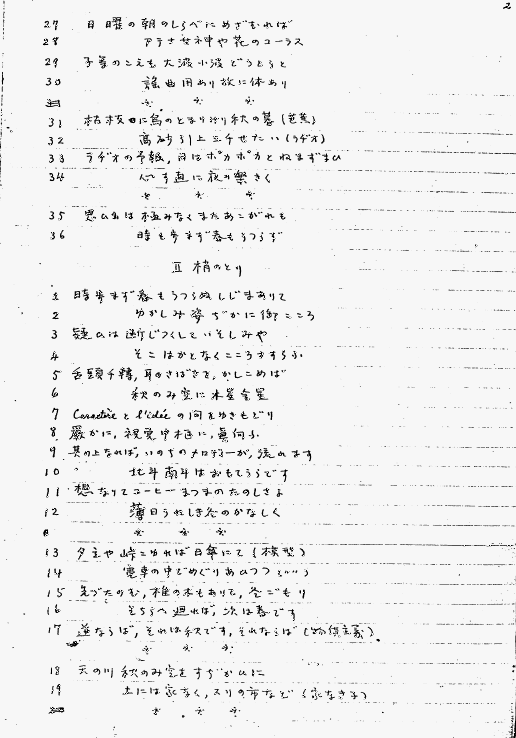 2
27 日曜の朝のしらべにめざむれば
28 アテナ女神や花のコーラス
29 子等のこえも大波小波どうどうと
30 故に体あり
31 枯枝に鳥のとまりけり秋の暮(芭蕉)
32 高砂 引上三千せたい(ラヂオ)
33 ラヂオの予報,月はポカポカとねまずまひ
34 に夜の繁きく
35 思ひ出は極みなくまたあこがれも
36 時も歩まず春もうつらず
II 梢のとり
1 時歩まず春もうつらぬしじまありて
2 ゆかしみ姿 ぢかに御こころ
3 疑ひは断じつくして いそしみや
4 そこはかとなくこころすすろふ
5 舌頭千轉,耳のさばきを,かしこめば
6 秋のみ空に木星金星
7 Caractère と l'idée の間をゆきもどり
8 厳かに,視覚中枢に,真向ふ
9 其の上なれば,いのちのメロディーが,流れます
10 北斗南斗はおもてうらです
11 なりてコーヒーまつまのたのしさよ
12 薄日うれしき冬のかなしく
13 夕立や峠こゆれば日傘にて
14 電車の中でめぐりあひつつ
15 先づたのむ,椎の木もありて,冬ごもり
16 そちらへ廻れば,次は春です
17 逆ならば,それは秋です,それならば
18 天の川秋のみ空をすぢかひに
19 土には家なく,スリの市など(家なき子)